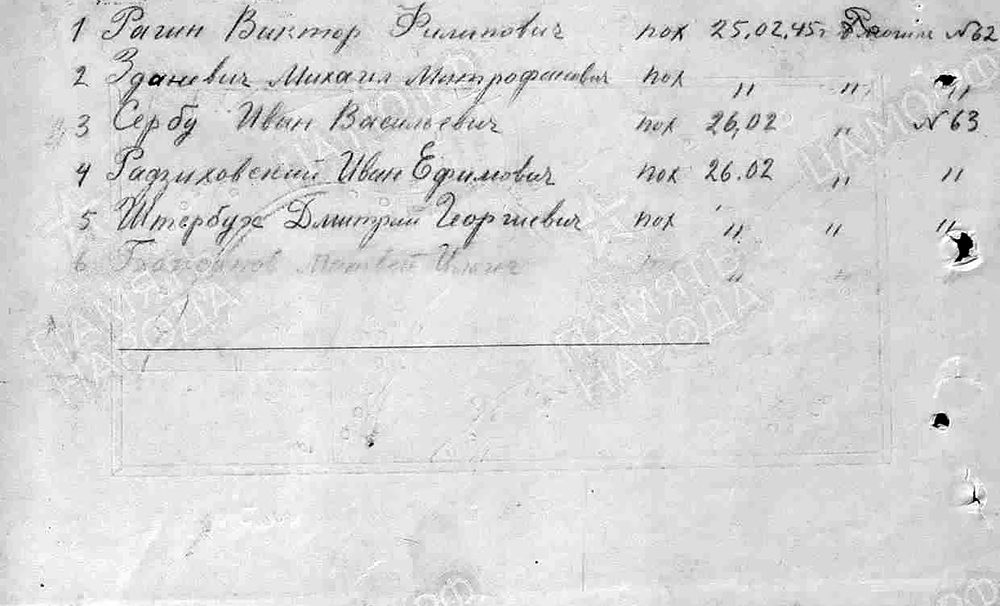 1 Рагин Виктор Филипович пох 25.02.45г № 62
2 Зданевич Михаил Митрофанович пох " " "
3 Сербу Иван Васильевич пох 26.02 " № 63
4 Радзиховский Иван Ефимович пох 26.02 " "
5 Штербух Дмитрий Георгиевич пох " " "
6 Матвей " "
ПАМЯТЬ НАРОДА
ПАМЯТЬ НАРОДА